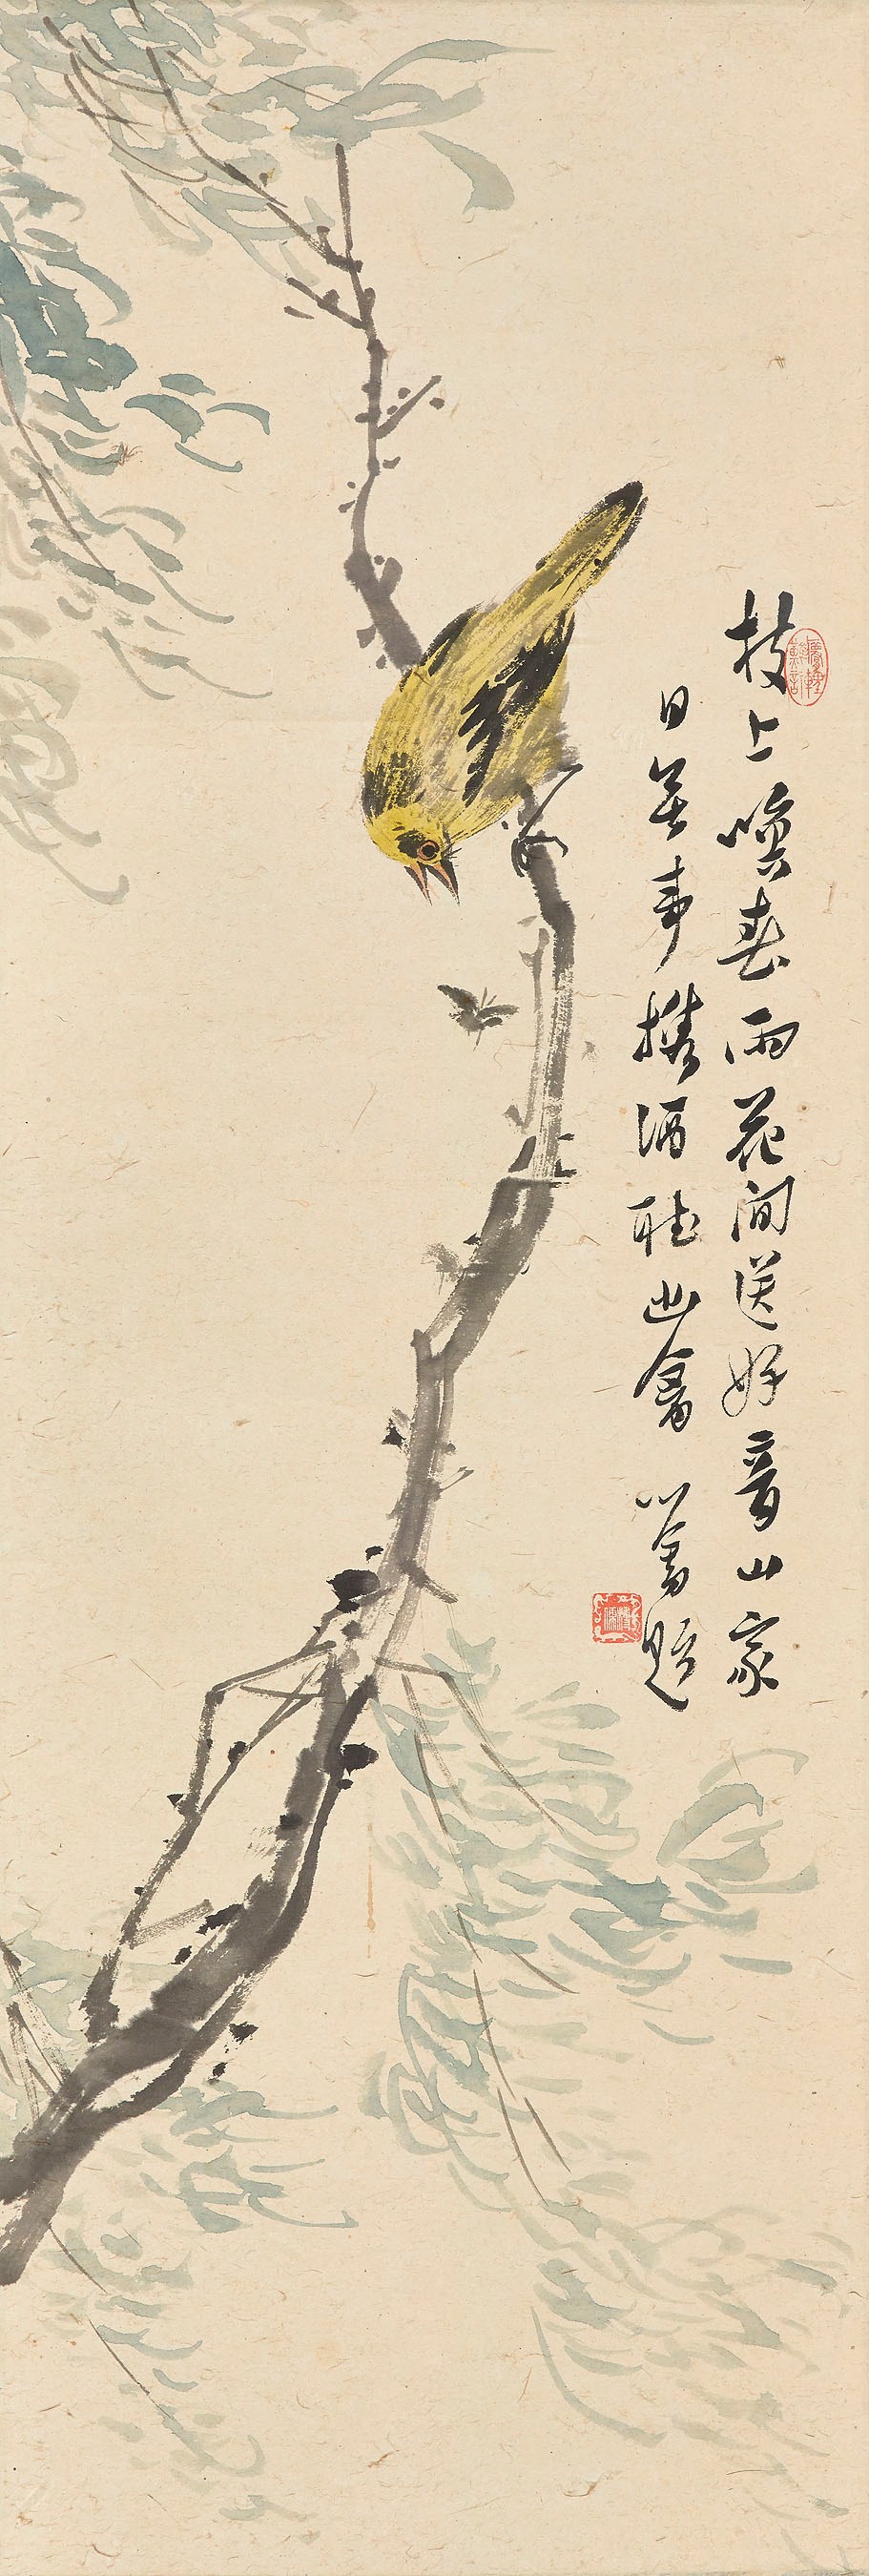 枝上喚春雨花間送好音山家
日無事攜酒聽幽禽 心畬題